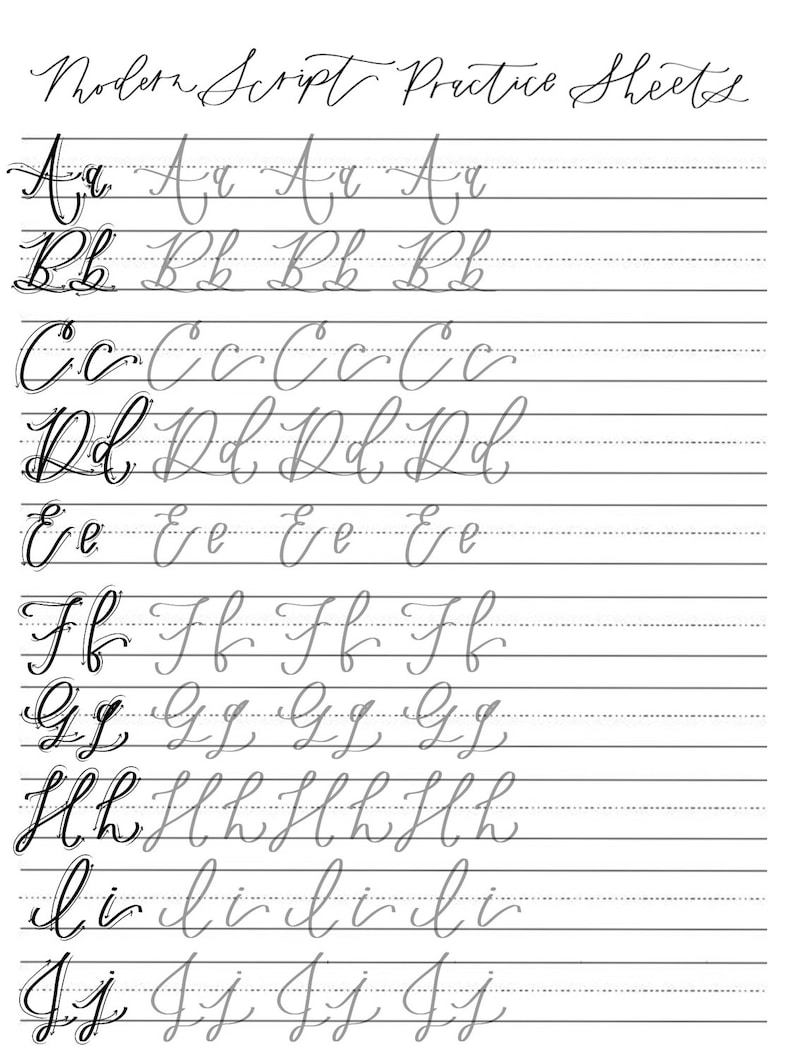 Modern Script Practice Sheets
Aa Aa Aa Aa
Bb Bb Bb Bb
Cc Cc Cc Cc
Dd Dd Dd Dd
Ee Ee Ee Ee
Ff Ff Ff Ff
Gg Gg Gg Gg
Hh Hh Hh Hh
Ii Ii Ii Ii
Jj Jj Jj Jj